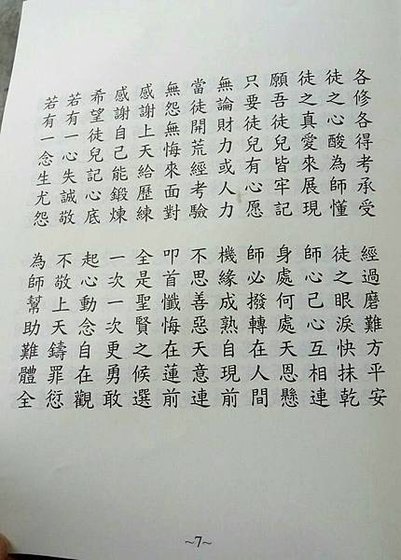 各修各得考承受
經過磨難方平安
徒之心酸為師懂
徒之眼淚快抹乾
徒之真愛來展現
師心己心互相連
願吾徒兒皆牢記
身處何處天恩懸
只要徒兒有心愿
師必撥轉在人間
無論財力或人力
機緣成熟自現前
當徒開荒經考驗
不思善惡天意連
無怨無悔來面對
叩首懺悔在蓮前
感謝上天給歷練
全是聖賢之候選
感謝自己能鍛煉
一次一次更勇敢
希望徒兒記心底
起心動念自在觀
若有一心失誠敬
不敬上天鑄罪衍
若有一念生尤怨
為師幫助難體全
~7~